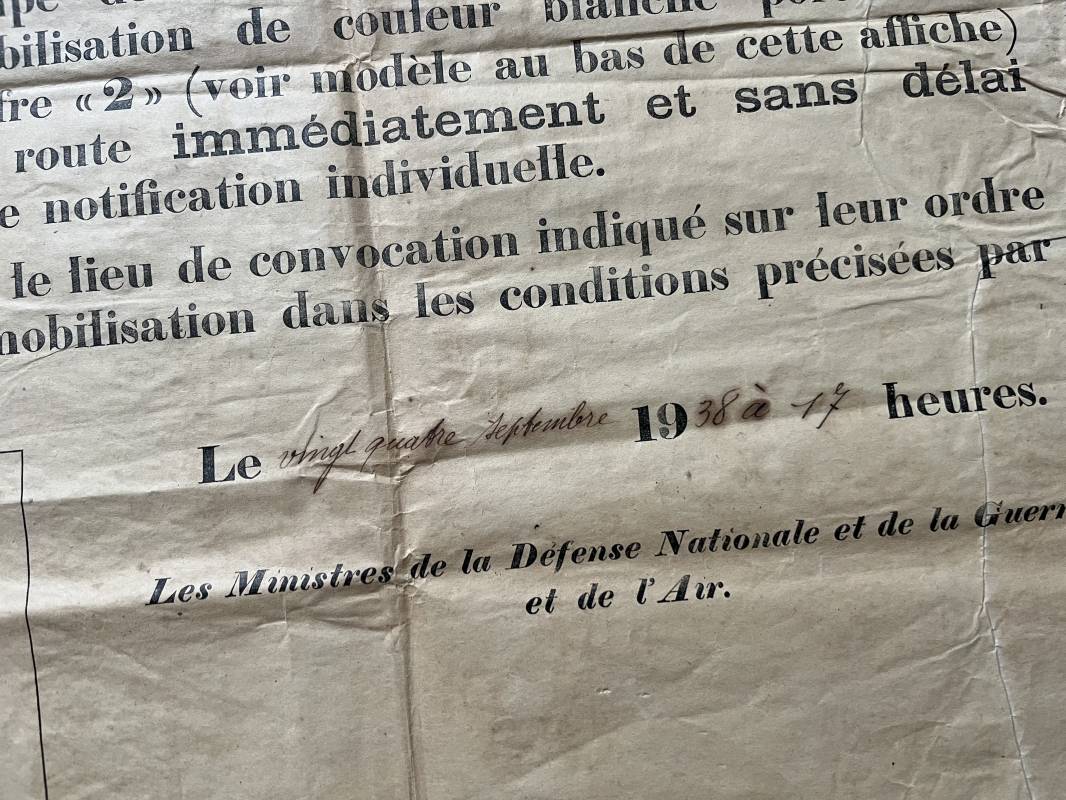 bilisation de couleur blanche
«2» (voir modèle au bas de cette affiche)
route immédiatement et sans délai
notification individuelle.
le lieu de convocation indiqué sur leur ordre
mobilisation dans les conditions précisées par
Le vingt quatre septembre 1938 à 17 heures.
Les Ministres de la Défense Nationale et de la Guerr
et de l'Air.